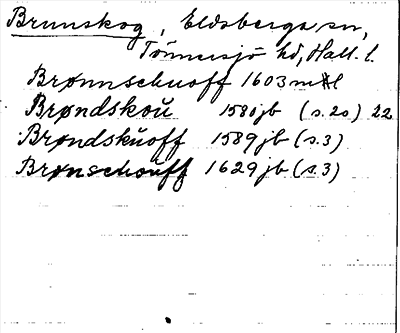 Brunskog, Eldsberga sn,
Tönnersjö hd, Hall. l.
Brønnschuoff 1603 mtl
Brøndskoŭ 1580 jb (s. 20) 22
Brøndskŭoff 1589 jb (s. 3)
Brønschouff 1629 jb (s. 3)